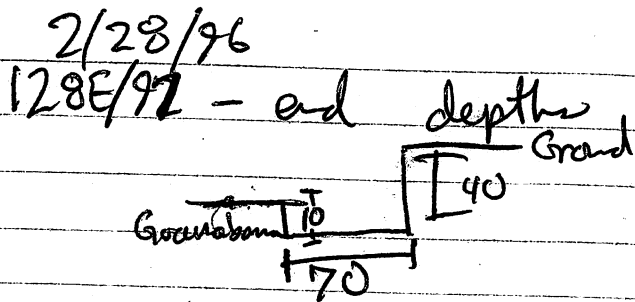 2/28/96
128E/92 - end depths
Ground
40
10
70